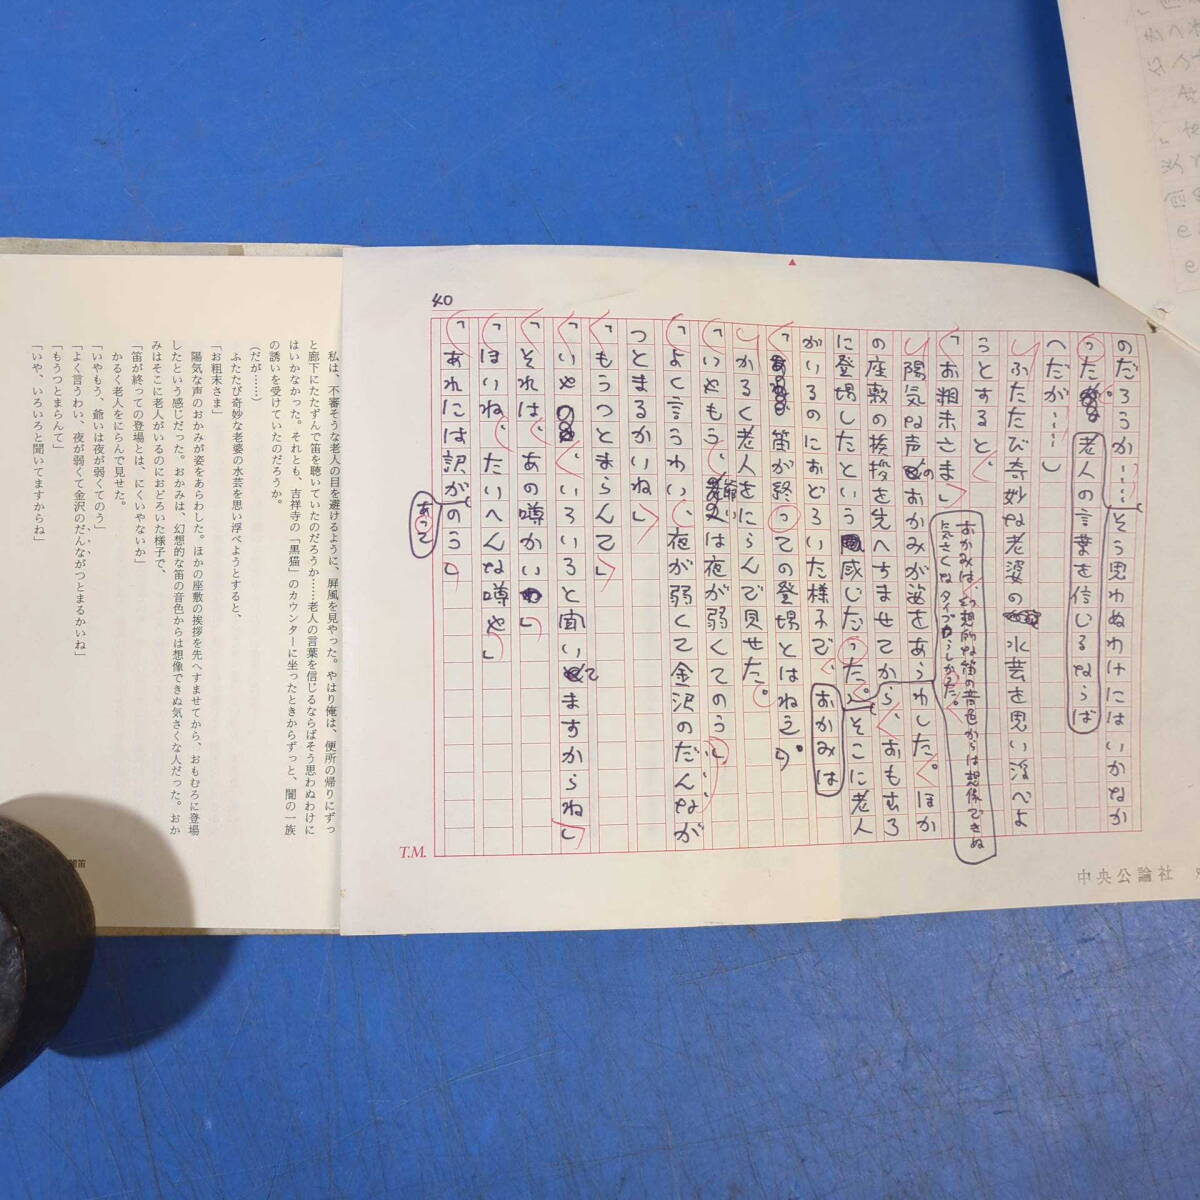 40
のだろうか……そう思わぬわけにはいかなか
った
老人の言葉を信じるならば
へだが……
ふたたび奇妙な老婆の水芸を思い浮べよ
うとすると、
「お粗末さま」
おかみは、幻想的な笛の音色からは想像できぬ
気さくなタイプ
陽気な声のおかみが姿をあらわした。ほか
の座敷の挨拶を先へすませてから、おもむろ
に登場したという感じだった。そこに老人
がいるのにおどろいた様子で、おかみは
「笛が終っての登場とはねえ」
かるく老人をにらんで見せた。
「いやもう、爺いは夜が弱くてのう」
「よく言うわい、夜が弱くて金沢のだんなが
つとまるかいね」
「もうつとまらんて」
「いや、いろいろと聞いてますからね」
「それは、あの噂かい」
「ほいね、たいへんな噂や」
「あれには訳があってのう」
T.M.
中央公論社
私は、不審そうな老人の目を避けるように、屏風を見やった。やはり俺は、便所の帰りにずっ
と廊下にたたずんで笛を聴いていたのだろうか……老人の言葉を信じるならばそう思わぬわけに
はいかなかった。それとも、吉祥寺の「黒猫」のカウンターに坐ったときからずっと、闇の一族
の誘いを受けていたのだろうか。
(だが……)
ふたたび奇妙な老婆の水芸を思い浮べようとすると、
「お粗末さま」
陽気な声のおかみが姿をあらわした。ほかの座敷の挨拶を先へすませてから、おもむろに登場
したという感じだった。おかみは、幻想的な笛の音色からは想像できぬ気さくな人だった。おか
みはそこに老人がいるのにおどろいた様子で、
「笛が終っての登場とは、にくいやないか」
かるく老人をにらんで見せた。
「いやもう、爺いは夜が弱くてのう」
「よく言うわい、夜が弱くて金沢のだんながつとまるかいね」
「もうつとまらんて」
「いや、いろいろと聞いてますからね」